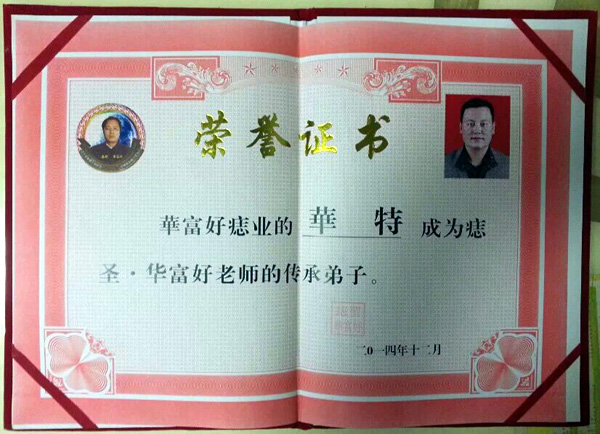 荣誉证书
華富好痣业的 華 特 成为痣
圣·华富好老师的传承弟子。
二0一四年十二月